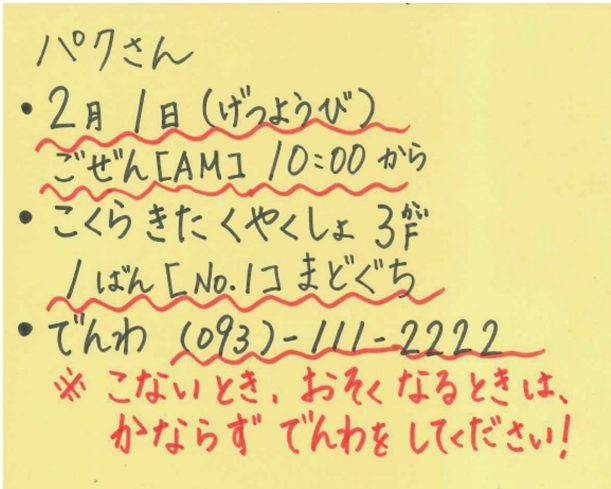 パクさん
・2月1日(げつようび)
ごぜん[AM] 10:00 から
・こくらきたくやくしょ 3F がい
1ばん[No.1]まどぐち
・でんわ (093)-111-2222
※ こないとき、おそくなるときは、
かならず でんわを してください!